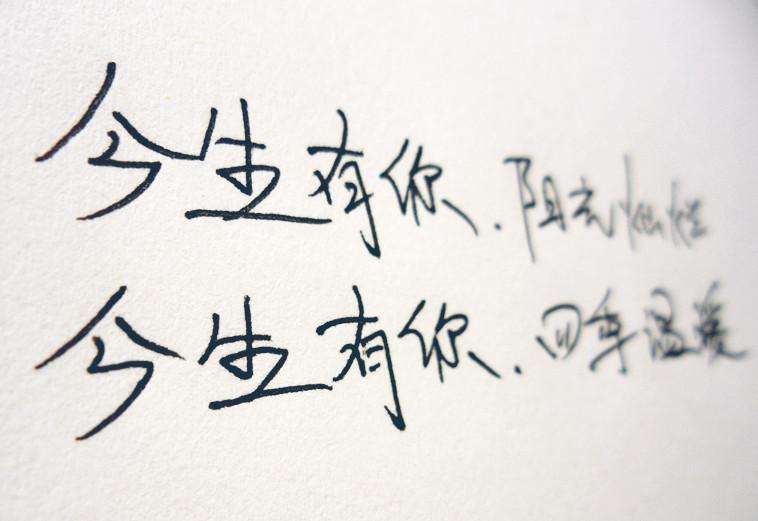 今生有你，阳光灿烂
今生有你，四季温暖